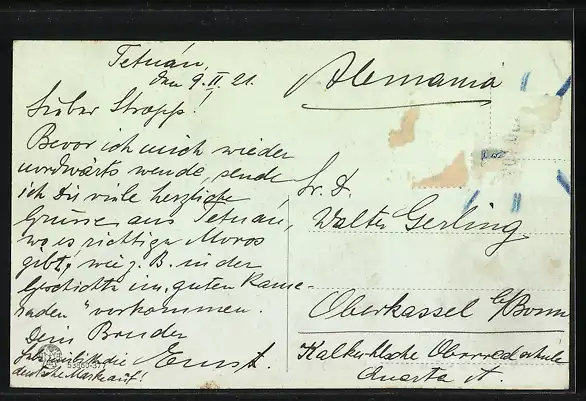 Tetuán,
den 9.II.21.
Lieber Stropp!
Bevor ich mich wieder
nordwärts wende, sende
ich Dir viele herzliche
Grüsse aus Tetuán,
wo es richtige Moros
gibt, wie z. B. in der
Geschichte im „guten Kame-
raden" vorkommen.
Dein Bruder
Ernst.
die
deutsche Marke auf!
53960-377
Alemania
Walter Gerling
Oberkassel b/Bonn
Oberrealschule
Quarta A.